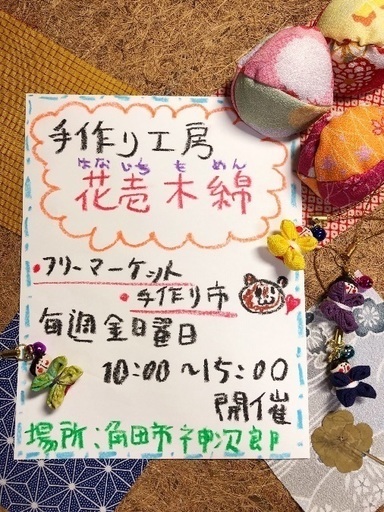 手作り工房
はな いち も めん
花壱木綿
・フリーマーケット
・手作り市
毎週金曜日
10:00〜15:00
開催
場所:角田市神次郎